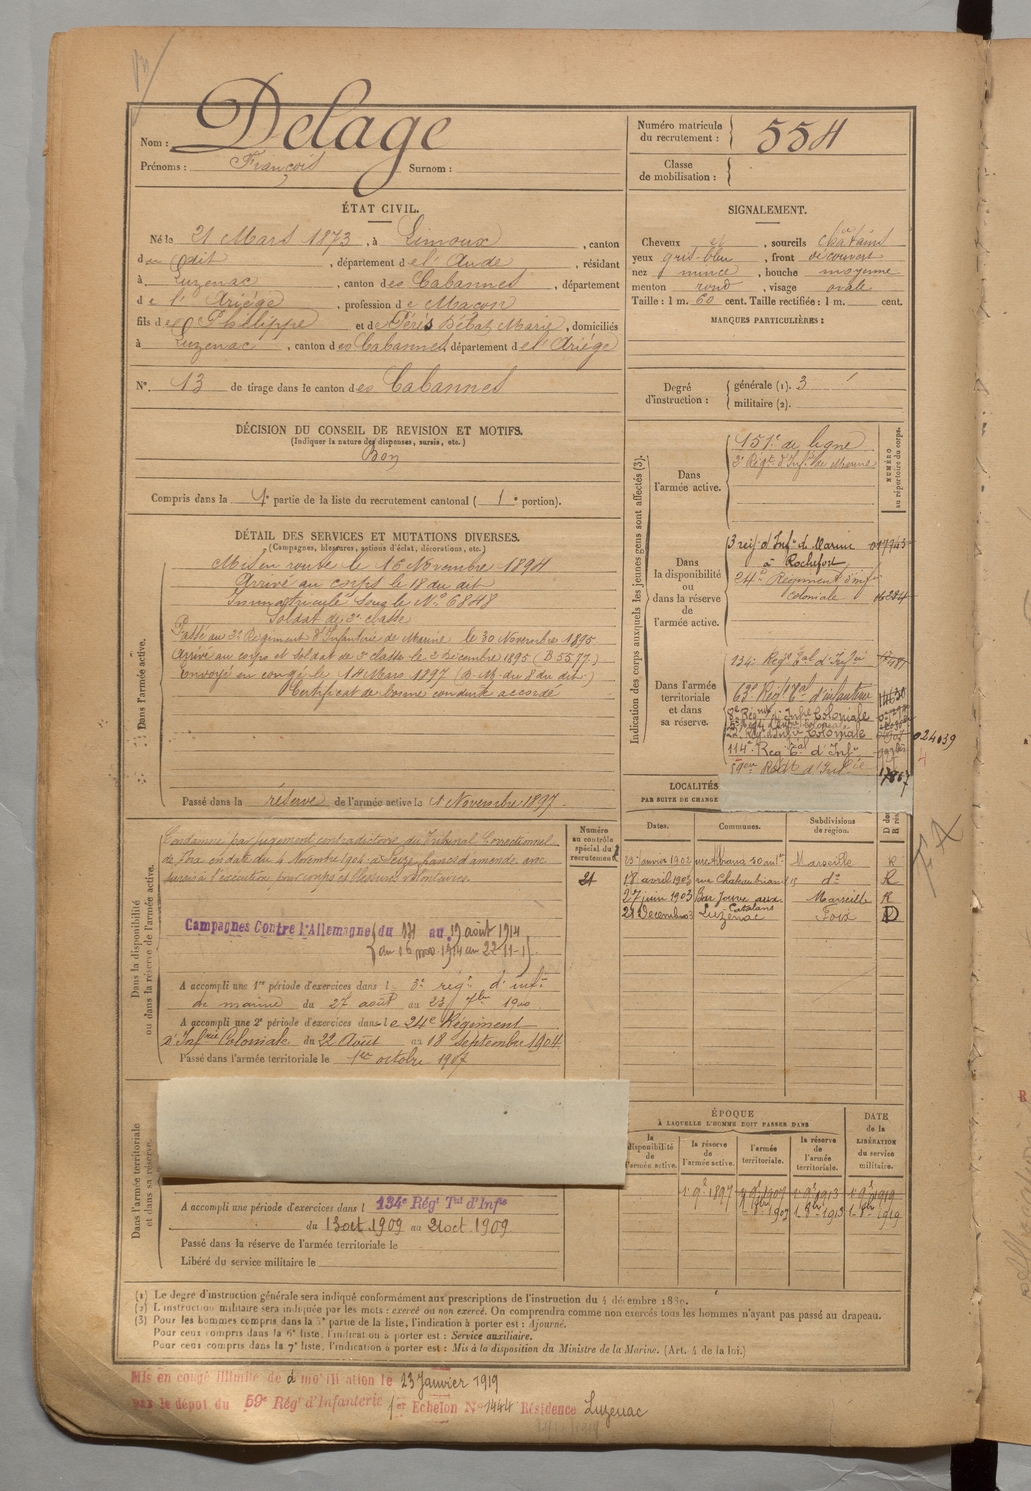 Nom : Delage
Prénoms : François Surnom :
Numéro matricule du recrutement : 554
Classe de mobilisation :
ÉTAT CIVIL.
Né le 21 Mars 1873, à Limoux, canton
du dit, département de l'Aude, résidant
à Luzenac, canton des Cabannes, département
de l'Ariège, profession de Maçon
fils de Philippe et de Pérés Marie, domiciliés
à Luzenac, canton des Cabannes, département de l'Ariège
N° 13 de tirage dans le canton des Cabannes
SIGNALEMENT.
Cheveux et, sourcils châtains
yeux gris-bleu, front découvert
nez mince, bouche moyenne
menton rond, visage ovale
Taille : 1 m. 60 cent. Taille rectifiée : 1 m. cent.
MARQUES PARTICULIÈRES :
Degré d'instruction : générale (1). 3
militaire (2).
DÉCISION DU CONSEIL DE REVISION ET MOTIFS.
(Indiquer la nature des dispenses, sursis, etc.)
Bon
Compris dans la 1e partie de la liste du recrutement cantonal (1e portion).
DÉTAIL DES SERVICES ET MUTATIONS DIVERSES.
(Campagnes, blessures, actions d'éclat, décorations, etc.)
Dans l'armée active.
Mis en route le 16 Novembre 1894
Arrivé au corps le 18 du dit
Immatriculé sous le N° 6848
Soldat de 2e classe
Passé au 3e Régiment d'Infanterie de Marine le 30 Novembre 1895
Arrivé au corps et soldat de 2e classe le 2 Décembre 1895 (B 5577)
Envoyé en congé le 14 Mars 1897 (D. M. du 8 du dit)
Certificat de bonne conduite accordé
Passé dans la réserve de l'armée active le 1 Novembre 1897.
Indication des corps auxquels les jeunes gens sont affectés (3).
NUMÉRO au répertoire du corps.
Dans l'armée active.
151e de ligne
3e Régt d'Infie de Marine
Dans la disponibilité ou dans la réserve de l'armée active.
3 reg d'Infie de Marine
à Rochefort
24e Régiment d'infie
Coloniale
Dans l'armée territoriale et dans sa réserve.
134e Regt Tal d'Infie
63e Regt Tal d'infanterie
8e Régt d'Infie Coloniale
Régt d'Infie Coloniale
114e Reg Tal d'Infie
59eme Regt d'Infie
024039
LOCALITÉS
PAR SUITE DE CHANGE
Dates. Communes. Subdivisions de région.
23 Janvier 1902 Marseille R
18 avril 1903 rue Chateaubriand 15 do R
27 juin 1903 Bar Jouve aux Catalans Marseille R
28 Décembre 03 Luzenac Foix D
Dans la disponibilité ou dans la réserve de l'armée active.
Numéro au contrôle spécial du recrutement
21
Condamné par jugement contradictoire du Tribunal Correctionnel
de Foix en date du 4 Novembre 1904 à Seize francs d'amende avec
sursis à l'exécution pour coups et blessures volontaires.
Campagnes Contre l'Allemagne du au 19 août 1914
du 16 nov. 1914 au 22-1-19
A accompli une 1re période d'exercices dans l 3e régt d'infie
de marine du 27 août au 23 7bre 1900
A accompli une 2e période d'exercices dans le 24e Régiment
d'Infrie Coloniale du 22 Août au 18 septembre 1904
Passé dans l'armée territoriale le 1er octobre 1907
Dans l'armée territoriale et dans sa réserve.
A accompli une période d'exercices dans l 134e Régt Tal d'Infie
du 13 oct 1909 au 21 oct 1909
Passé dans la réserve de l'armée territoriale le
Libéré du service militaire le
ÉPOQUE
À LAQUELLE L'HOMME DOIT PASSER DANS
DATE de la LIBÉRATION du service militaire.
la disponibilité de l'armée active. la réserve de l'armée active. l'armée territoriale. la réserve de l'armée territoriale.
(1) Le degré d'instruction générale sera indiqué conformément aux prescriptions de l'instruction du 4 décembre 1889.
(2) L'instruction militaire sera indiquée par les mots : exercé ou non exercé. On comprendra comme non exercés tous les hommes n'ayant pas passé au drapeau.
(3) Pour les hommes compris dans la 5e partie de la liste, l'indication à porter est : Ajourné.
Pour ceux compris dans la 6e liste, l'indication à porter est : Service auxiliaire.
Pour ceux compris dans la 7e liste, l'indication à porter est : Mis à la disposition du Ministre de la Marine. (Art. 4 de la loi.)
Mis en congé illimité de démobilisation le 23 Janvier 1919
par le dépôt du 59e Régt d'Infanterie 1er Echelon N° 1444 Résidence Luzenac